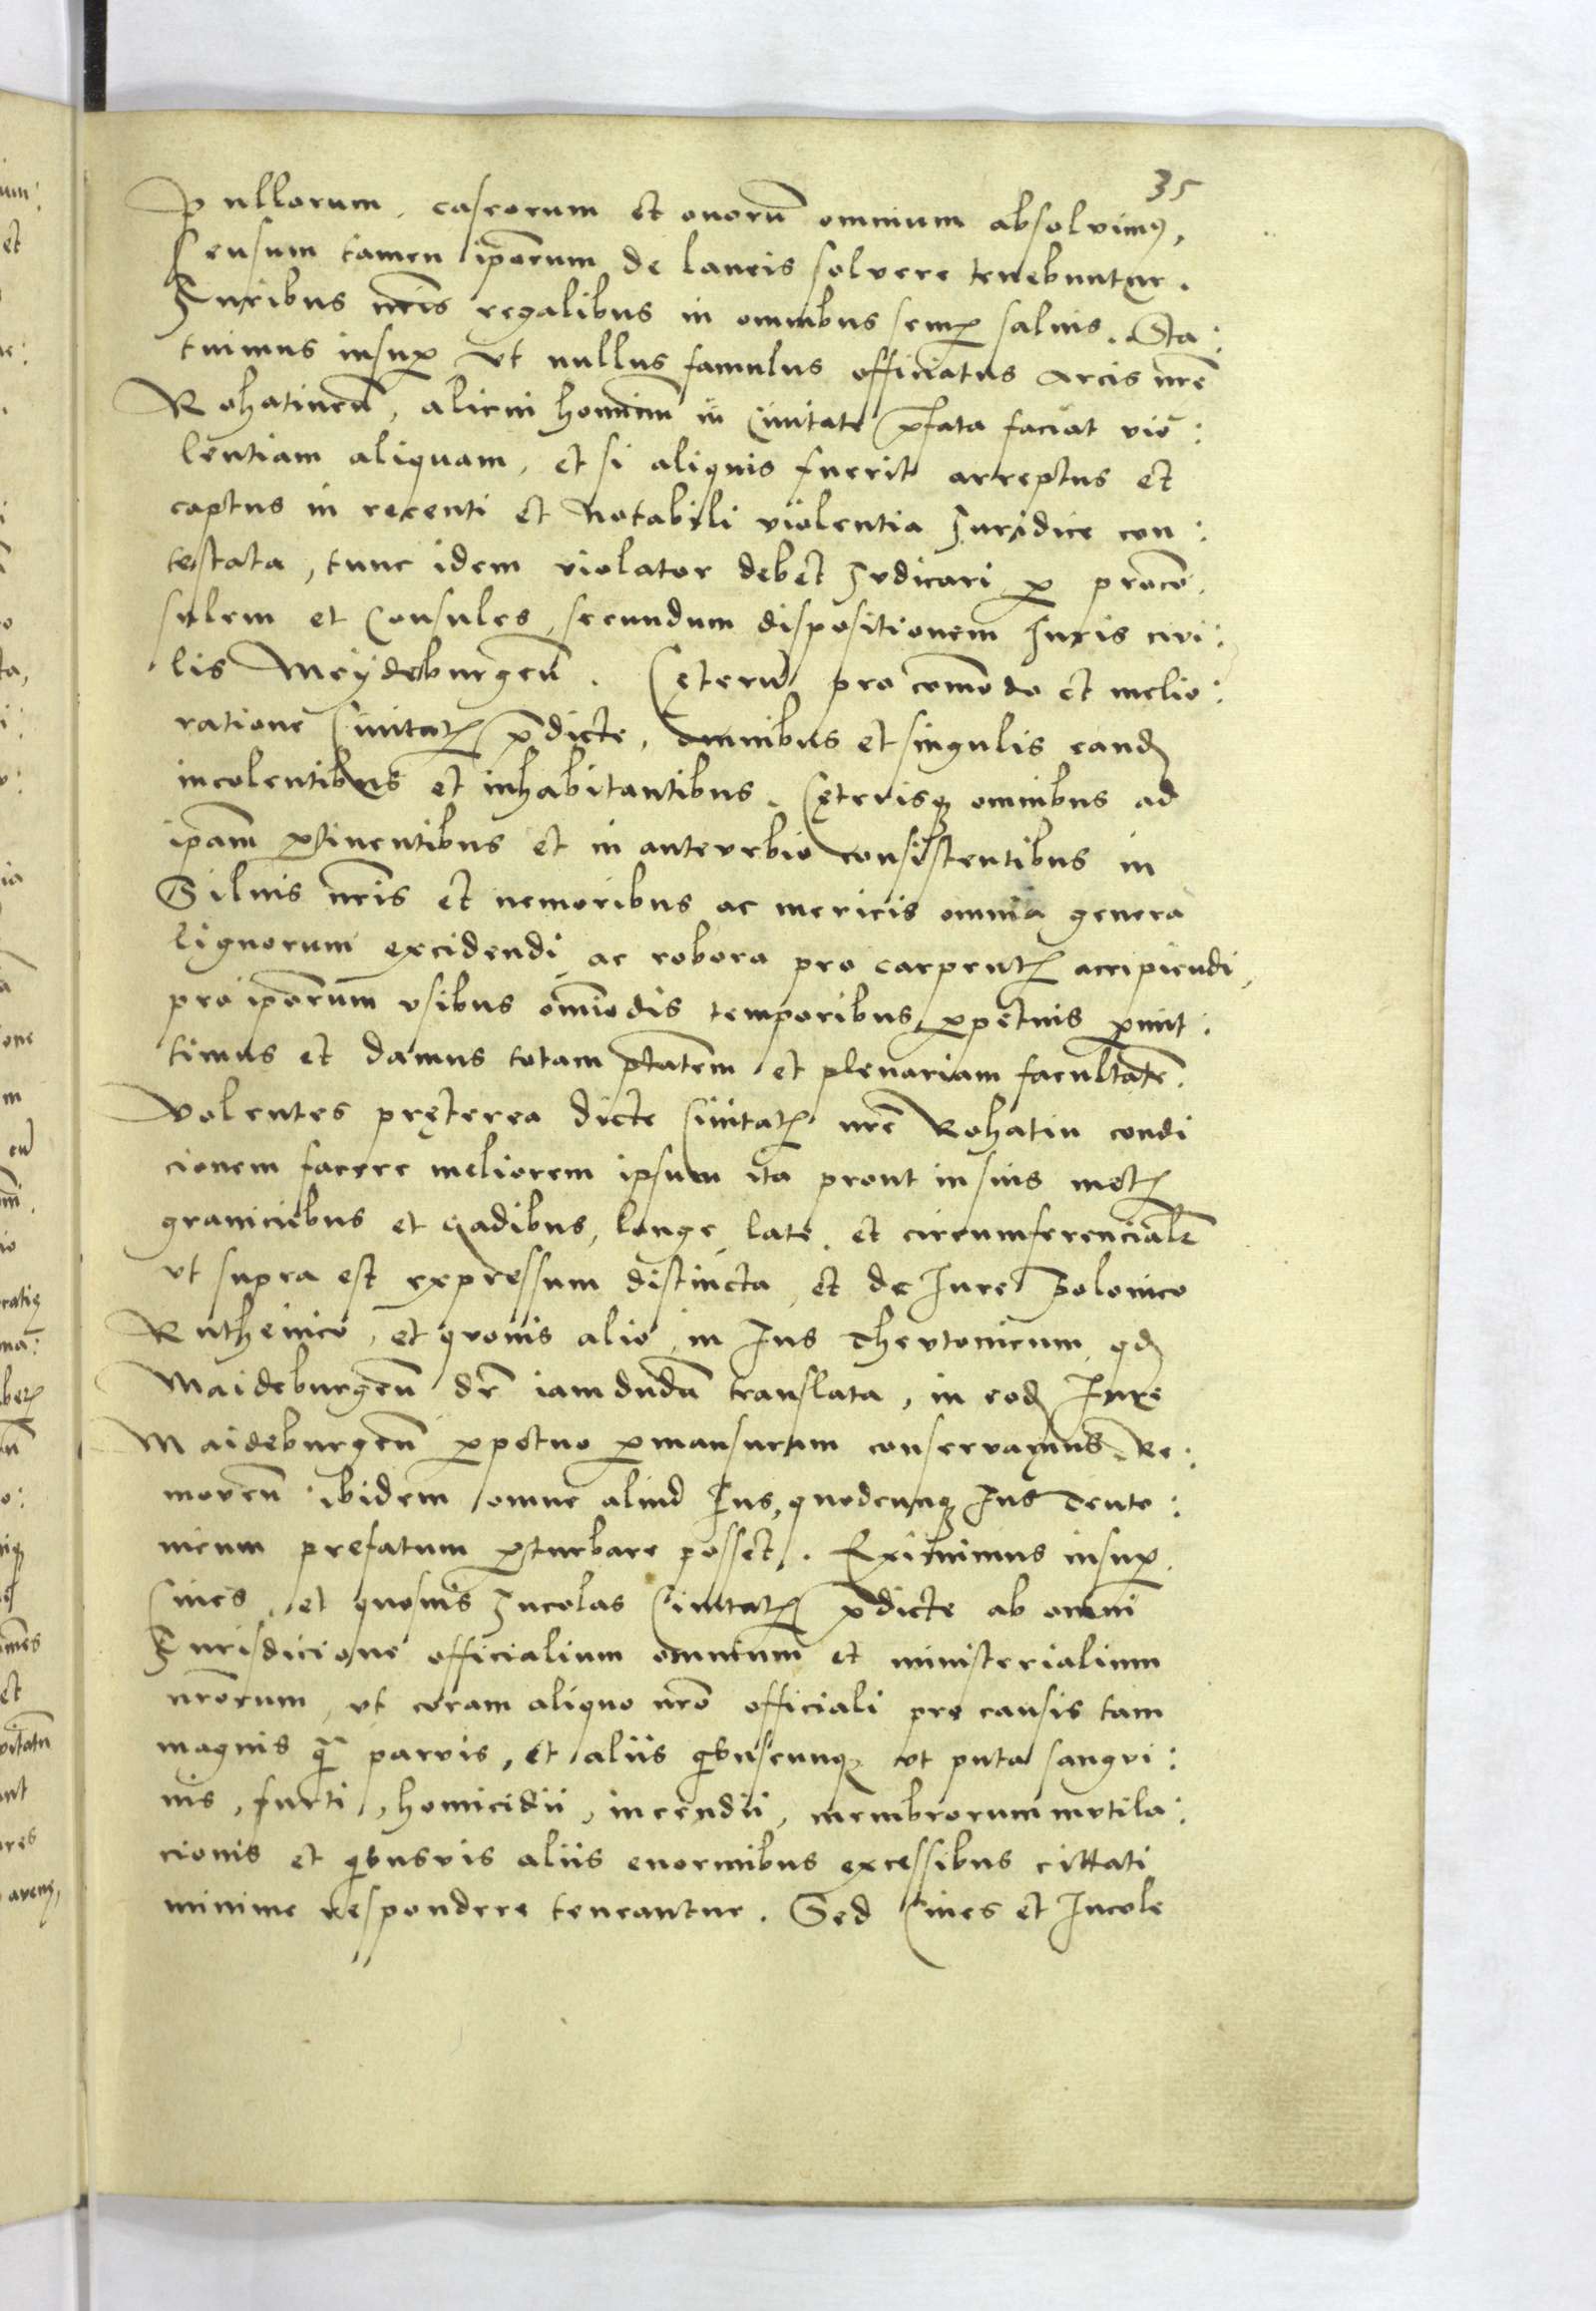 35
Pullorum, caseorum et ovorū omnium absolvimꝰ,
Censum tamen ip̄orum de laneis solvere tenebuntur.
Iuribus nr̄is regalibus in omnibus semꝑ salvis. Sta:
tuimus insuꝑ vt nullus famulus officiatus Arcis nr̄e
Rohatineñ, alicui hominū in Civitate p̄fata faciat vio:
lentiam aliquam, et si aliquis fuerit arreptus et
captus in recenti et notabili violentia Iuridice con:
testata, tunc idem violator debet Iudicari ꝑ procō:
sulem et Consules, secundum dispositionem Iuris civi:
lis Meydeburgeñ. Cęterū pro cōmodo et melio:
ratione Civitatꝭ p̄dicte, omnibus et singulis eandꝫ
incolentibus et inhabitantibus. Cęterisqꝫ omnibus ad
ip̄am ꝑtinentibus et in antevrbio consistentibus in
Silvis nr̄is et nemoribus ac mericis omnia genera
lignorum excidendi ac robora pro carpentꝭ accipiendi,
pro ip̄orum vsibus om̄iodis temporibus ꝑpetuis ꝑmit:
timus et damus totam ptātem et plenariam facultatē.
Volentes pręterea dicte Civitatꝭ nr̄e Rohatin condi
cionem facere meliorem ipsum ita prout in suis metꝭ
graniciebus et gadibus, longe late et circumferencialr̄
vt supra est expressum distincta, et de Iure Polonico
Ruthenico, et quovis alio in Ius Thevtonicum, qdꝫ
Maideburgeñ dr̄ iamdudū translata, in eodꝫ Iure
Maideburgeñ ꝑpetuo ꝑmansuram conservamus, Re:
moveñ ibidem omne aliud Ius, quodcunqꝫ Ius Teuto:
nicum prefatum ꝑturbare posset. Eximimus insuꝑ
Cives, et quosvis Incolas Civitatꝭ p̄dicte ab omni
Iurisdicione officialium omnium et ministerialium
nr̄orum, vt coram aliquo nr̄o officiali pro causis tam
magnis q̄ parvis, et aliis qibuscunqꝫ vt puta sangvi:
nis, furti, homicidii, incendii, membrorum mvtila:
cionis et qibusvis aliis enormibus excessibus cittati
minime respondere teneantur. Sed Cives et Incole